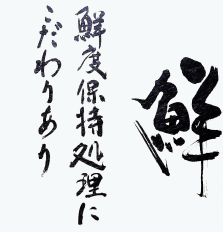 鮮
鮮度保持処理に
こだわりあり